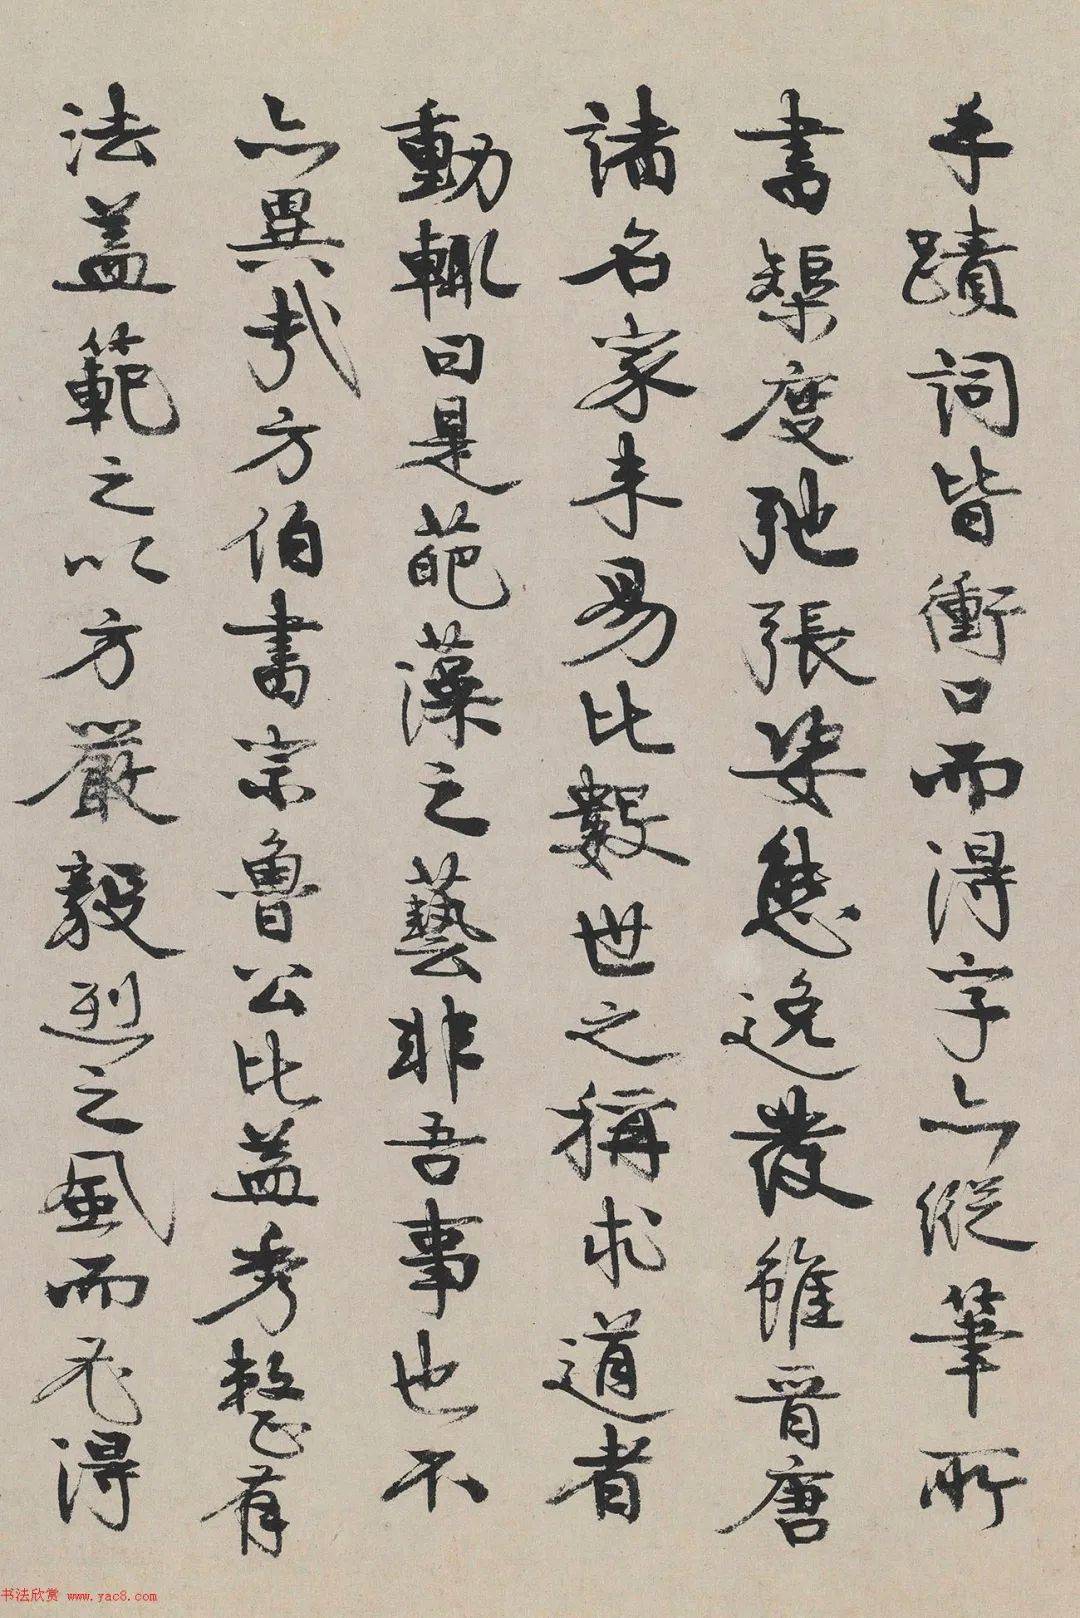 手蹟詞皆衝口而得字亦縱筆所
書榘度弛張姿態逸發雖晉唐
諸名家未易比數世之稱求道者
動輒曰是葩藻之藝非吾事也不
亦異哉方伯書宗魯公比益秀整有
法盖範之以方嚴毅烈之風而尤得
书法欣赏 www.yac8.com